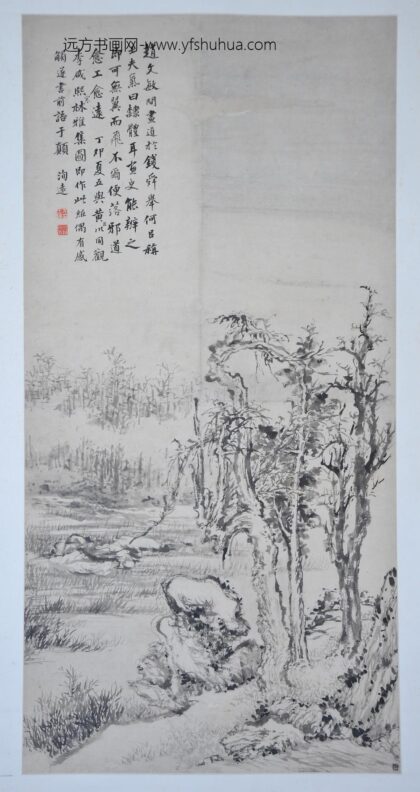 远方书画网-www.yfshuhua.com
趙文敏問畫道於錢舜舉何以稱
士夫氣曰隸體耳畫史能辨之
即可無翼而飛不爾便落邪道
愈工愈遠 丁卯夏五與黃 同觀
李咸熙林雅集圖即作此紙偶有感
觸遂書前語于顛 洵遠